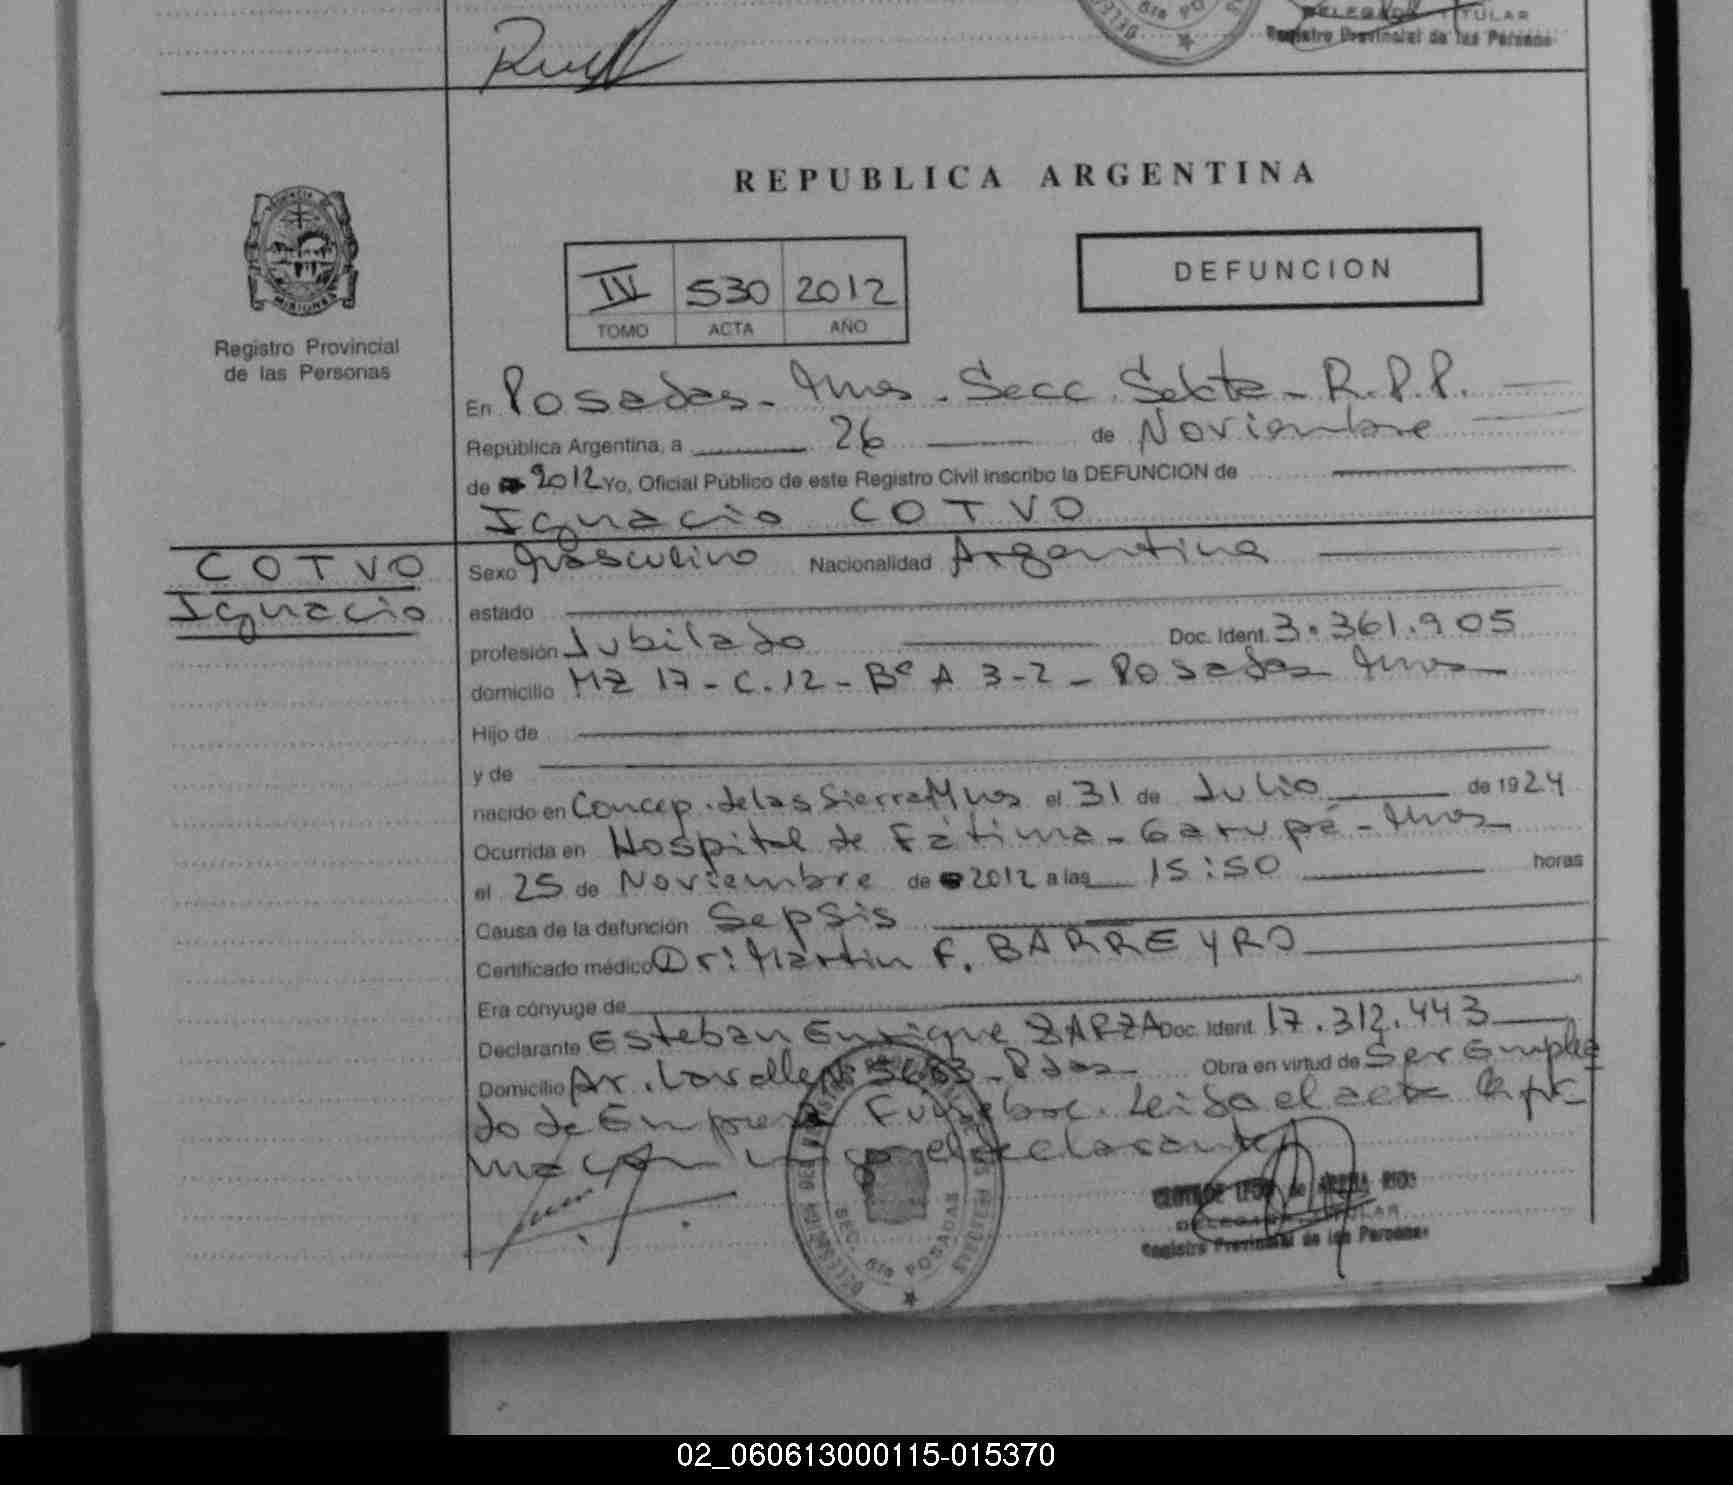 DELEGADA TITULAR
Registro Provincial de las Personas
REPUBLICA ARGENTINA
MISIONES
Registro Provincial
de las Personas
IV 530 2012
TOMO ACTA AÑO
DEFUNCION
En Posadas - Mnes. Secc. Sexta - R.P.P.
República Argentina, a 26 de Noviembre
de 2012 Yo, Oficial Público de este Registro Civil inscribo la DEFUNCION de
Ignacio COTVO
COTVO
Ignacio
Sexo Masculino Nacionalidad Argentina
estado
profesión Jubilado Doc. Ident. 3.361.905
domicilio MZ 17 - C. 12 - Bº A 3-2 - Posadas Mnes
Hijo de
y de
nacido en Concep. de las Sierra Mnes el 31 de Julio de 1924
Ocurrida en Hospital de Fátima - Garupá - Mnes
el 25 de Noviembre de 2012 a las 15:50 horas
Causa de la defunción Sepsis
Certificado médico Dr: Martin F. BARREYRO
Era cónyuge de
Declarante Esteban Enrique ZARZA Doc. Ident. 17.312.443
Domicilio Av. Lavalle 5663 - Pdas Obra en virtud de Ser Emplea
do de Empresa Funebre. Leida el acta la fir
ma el declarante
SEC. 6ta POSADAS
DELEGADA TITULAR
Registro Provincial de las Personas
02_060613000115-015370